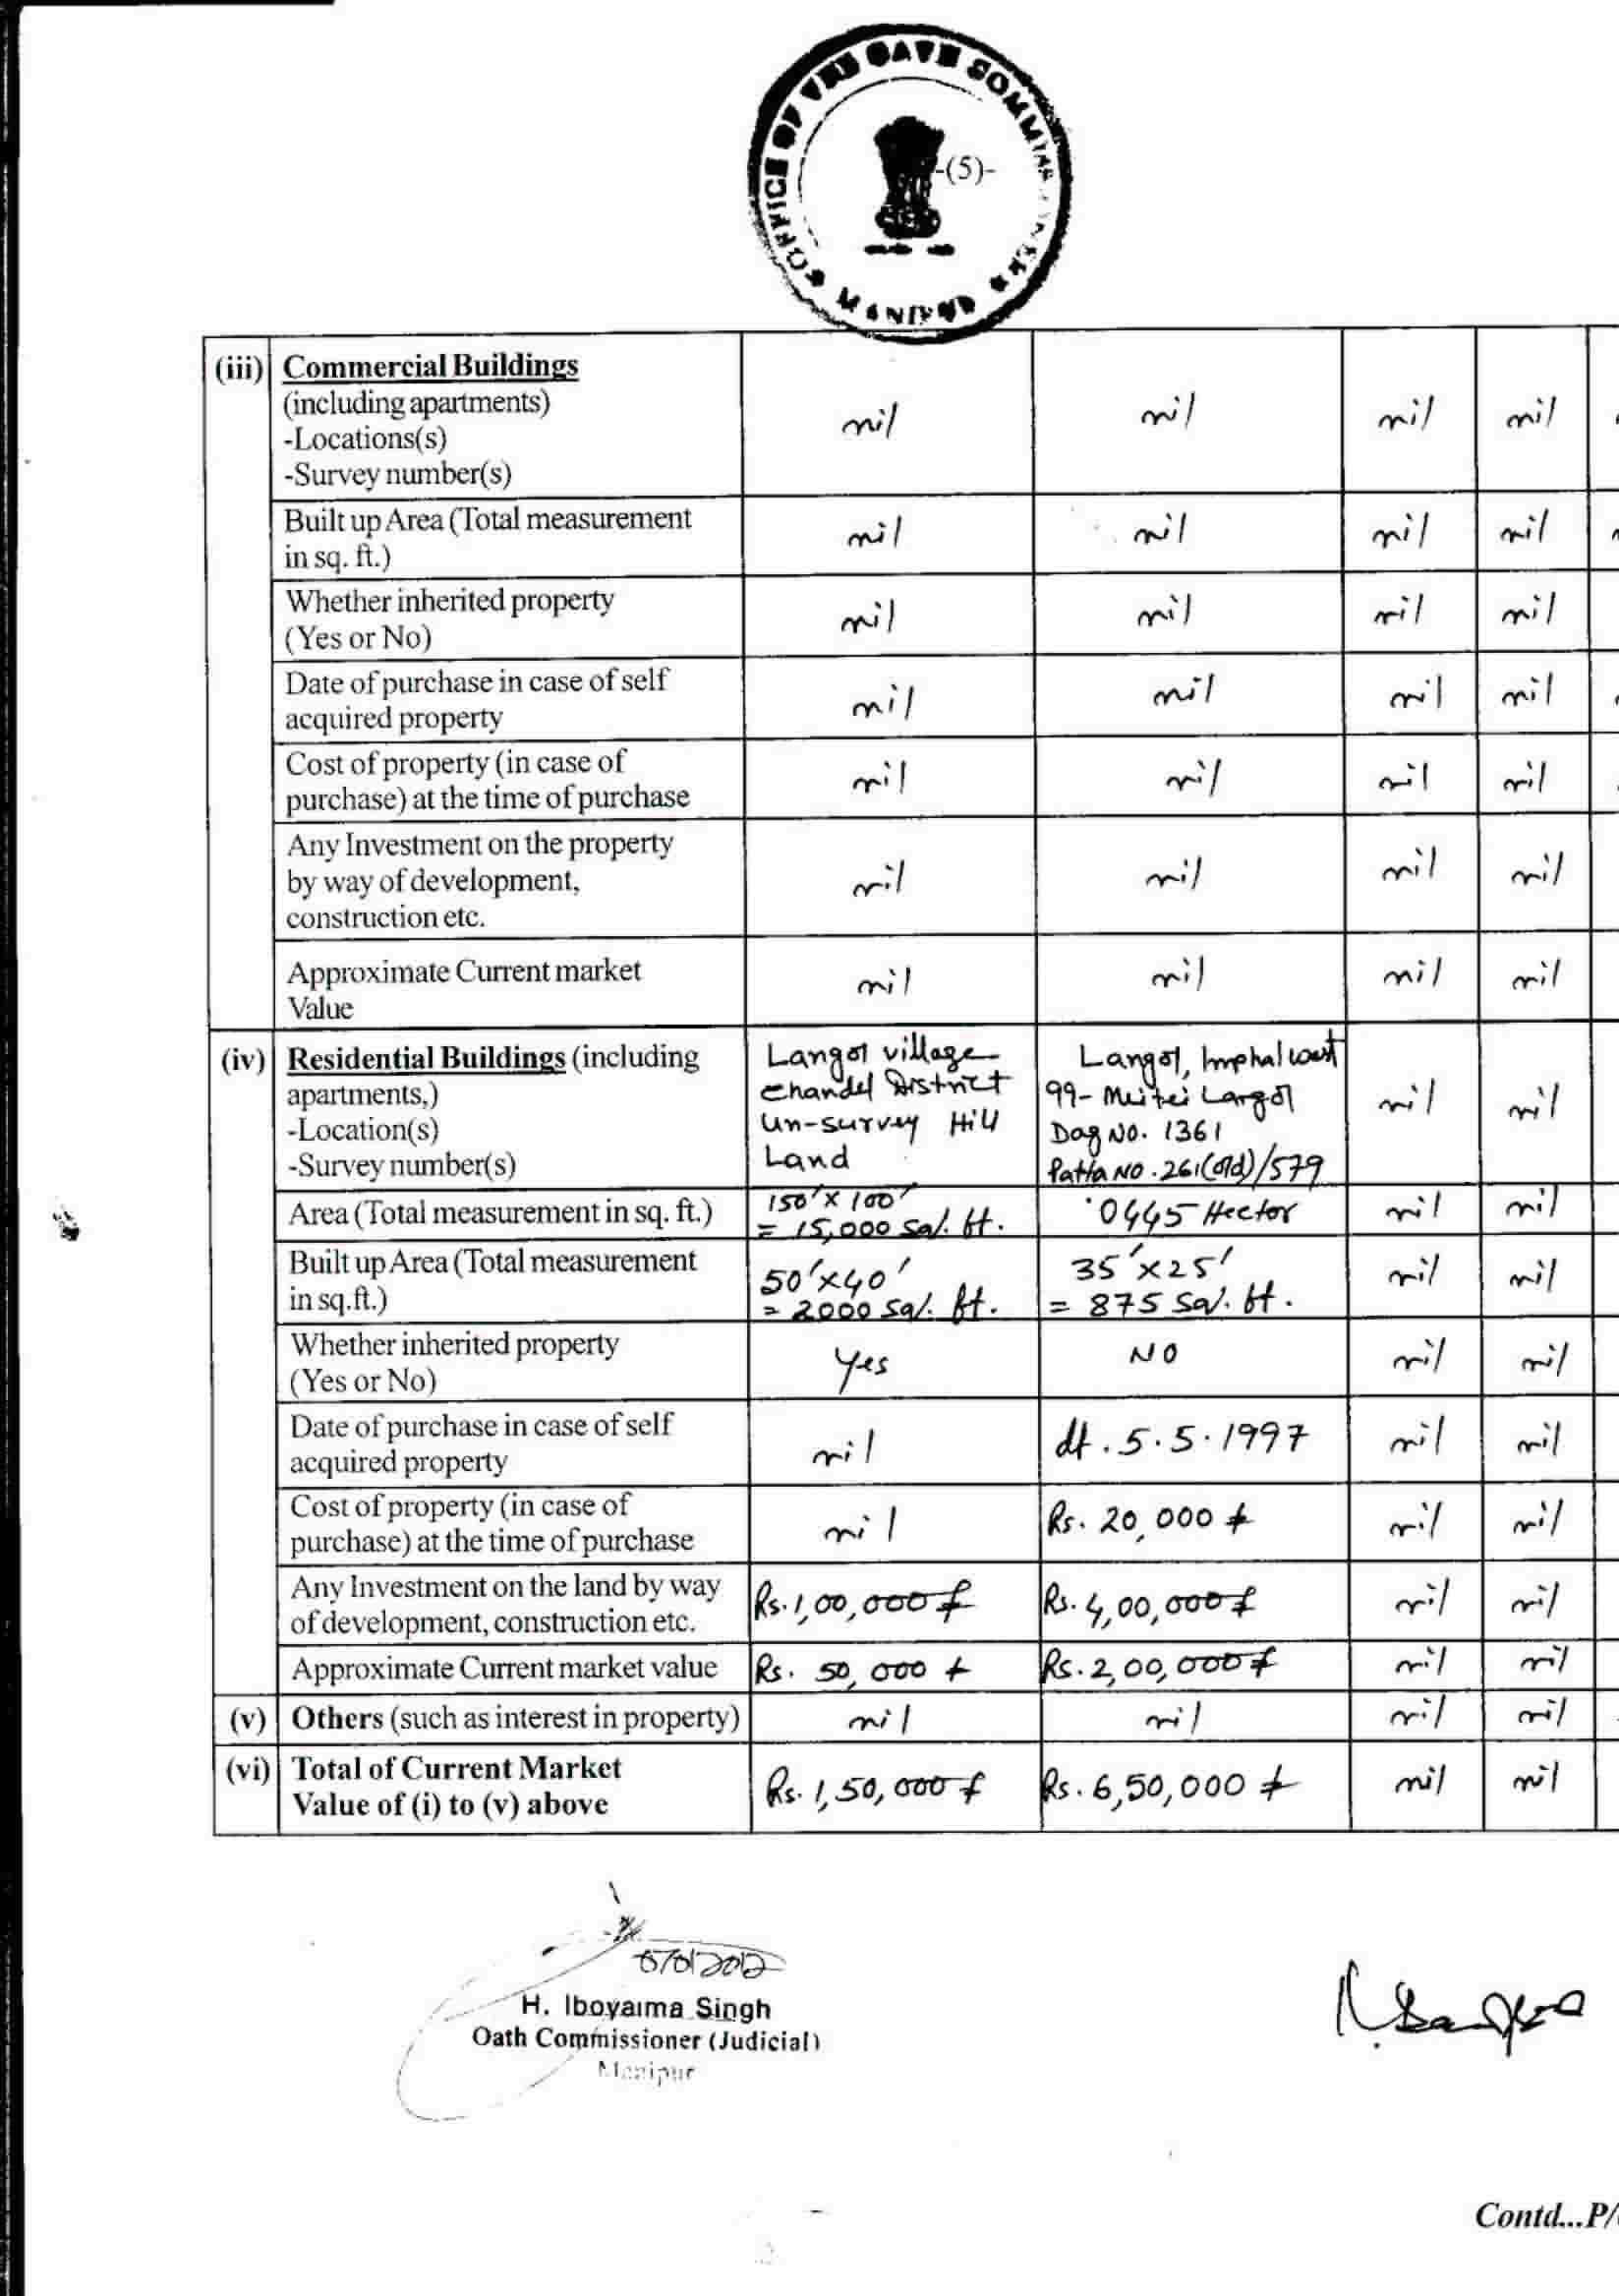 OFFICE OF THE OATH COMMISSIONER
MANIPUR
-(5)-
(iii) Commercial Buildings
(including apartments)
-Locations(s)
-Survey number(s)
nil nil nil nil
Built up Area (Total measurement
in sq. ft.)
nil nil nil nil
Whether inherited property
(Yes or No)
nil nil nil nil
Date of purchase in case of self
acquired property
nil nil nil nil
Cost of property (in case of
purchase) at the time of purchase
nil nil nil nil
Any Investment on the property
by way of development,
construction etc.
nil nil nil nil
Approximate Current market
Value
nil nil nil nil
(iv) Residential Buildings (including
apartments,)
-Location(s)
-Survey number(s)
Langol village
Chandel District
Un-survey Hill
Land
Langol, Imphal West
99- Meitei Langol
Dag No. 1361
Patta No. 261(old)/579
nil nil
Area (Total measurement in sq. ft.)
150' x 100'
= 15,000 Sq. ft.
.0445 Hector
nil nil
Built up Area (Total measurement
in sq.ft.)
50'x40'
= 2000 Sq. ft.
35'x25'
= 875 Sq. ft.
nil nil
Whether inherited property
(Yes or No)
Yes NO nil nil
Date of purchase in case of self
acquired property
nil dt. 5.5.1997 nil nil
Cost of property (in case of
purchase) at the time of purchase
nil Rs. 20,000/- nil nil
Any Investment on the land by way
of development, construction etc.
Rs. 1,00,000/- Rs. 4,00,000/- nil nil
Approximate Current market value Rs. 50,000/- Rs. 2,00,000/- nil nil
(v) Others (such as interest in property) nil nil nil nil
(vi) Total of Current Market
Value of (i) to (v) above
Rs. 1,50,000/- Rs. 6,50,000/- nil nil
H. Iboyaima Singh
Oath Commissioner (Judicial)
Manipur
Contd...P/